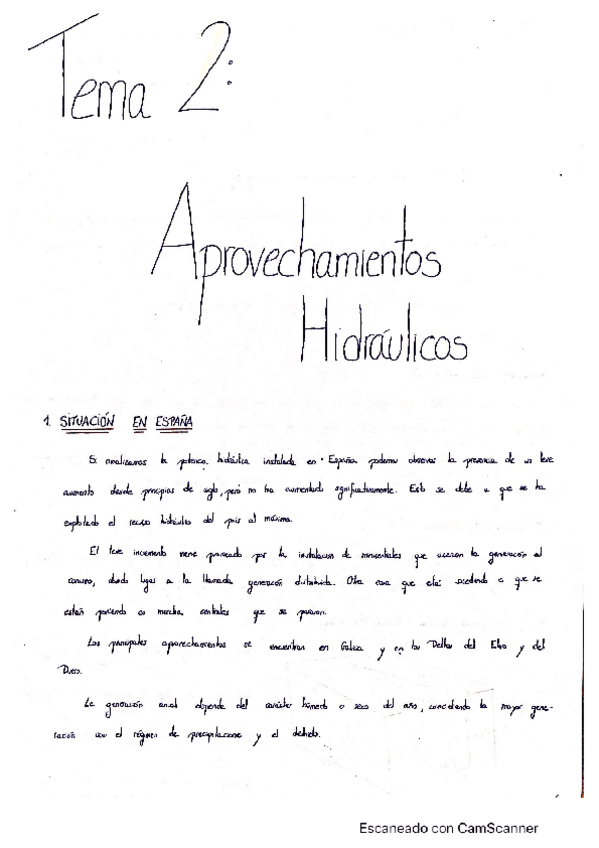 Tema 2:
Aprovechamientos
Hidráulicos
1. SITUACIÓN EN ESPAÑA
Si analizamos la potencia hidráulica instalada en España podemos observar la presencia de un leve
aumento desde principios de siglo, pero no ha aumentado significativamente. Esto se debe a que se ha
explotado el recurso hidráulico del país al máximo.
El leve incremento viene por la instalación de que acercan la generación al
consumo, dando lugar a la llamada generación distribuida. Otra cosa que está sucediendo es que se
están poniendo en marcha centrales que se pararon.
Los principales aprovechamientos se encuentran en Galicia y en los Deltas del Ebro y del
Duero.
La generación anual depende del carácter húmedo o seco del año, coincidiendo la mayor gene-
ración con el régimen de precipitaciones y el deshielo.
Escaneado con CamScanner